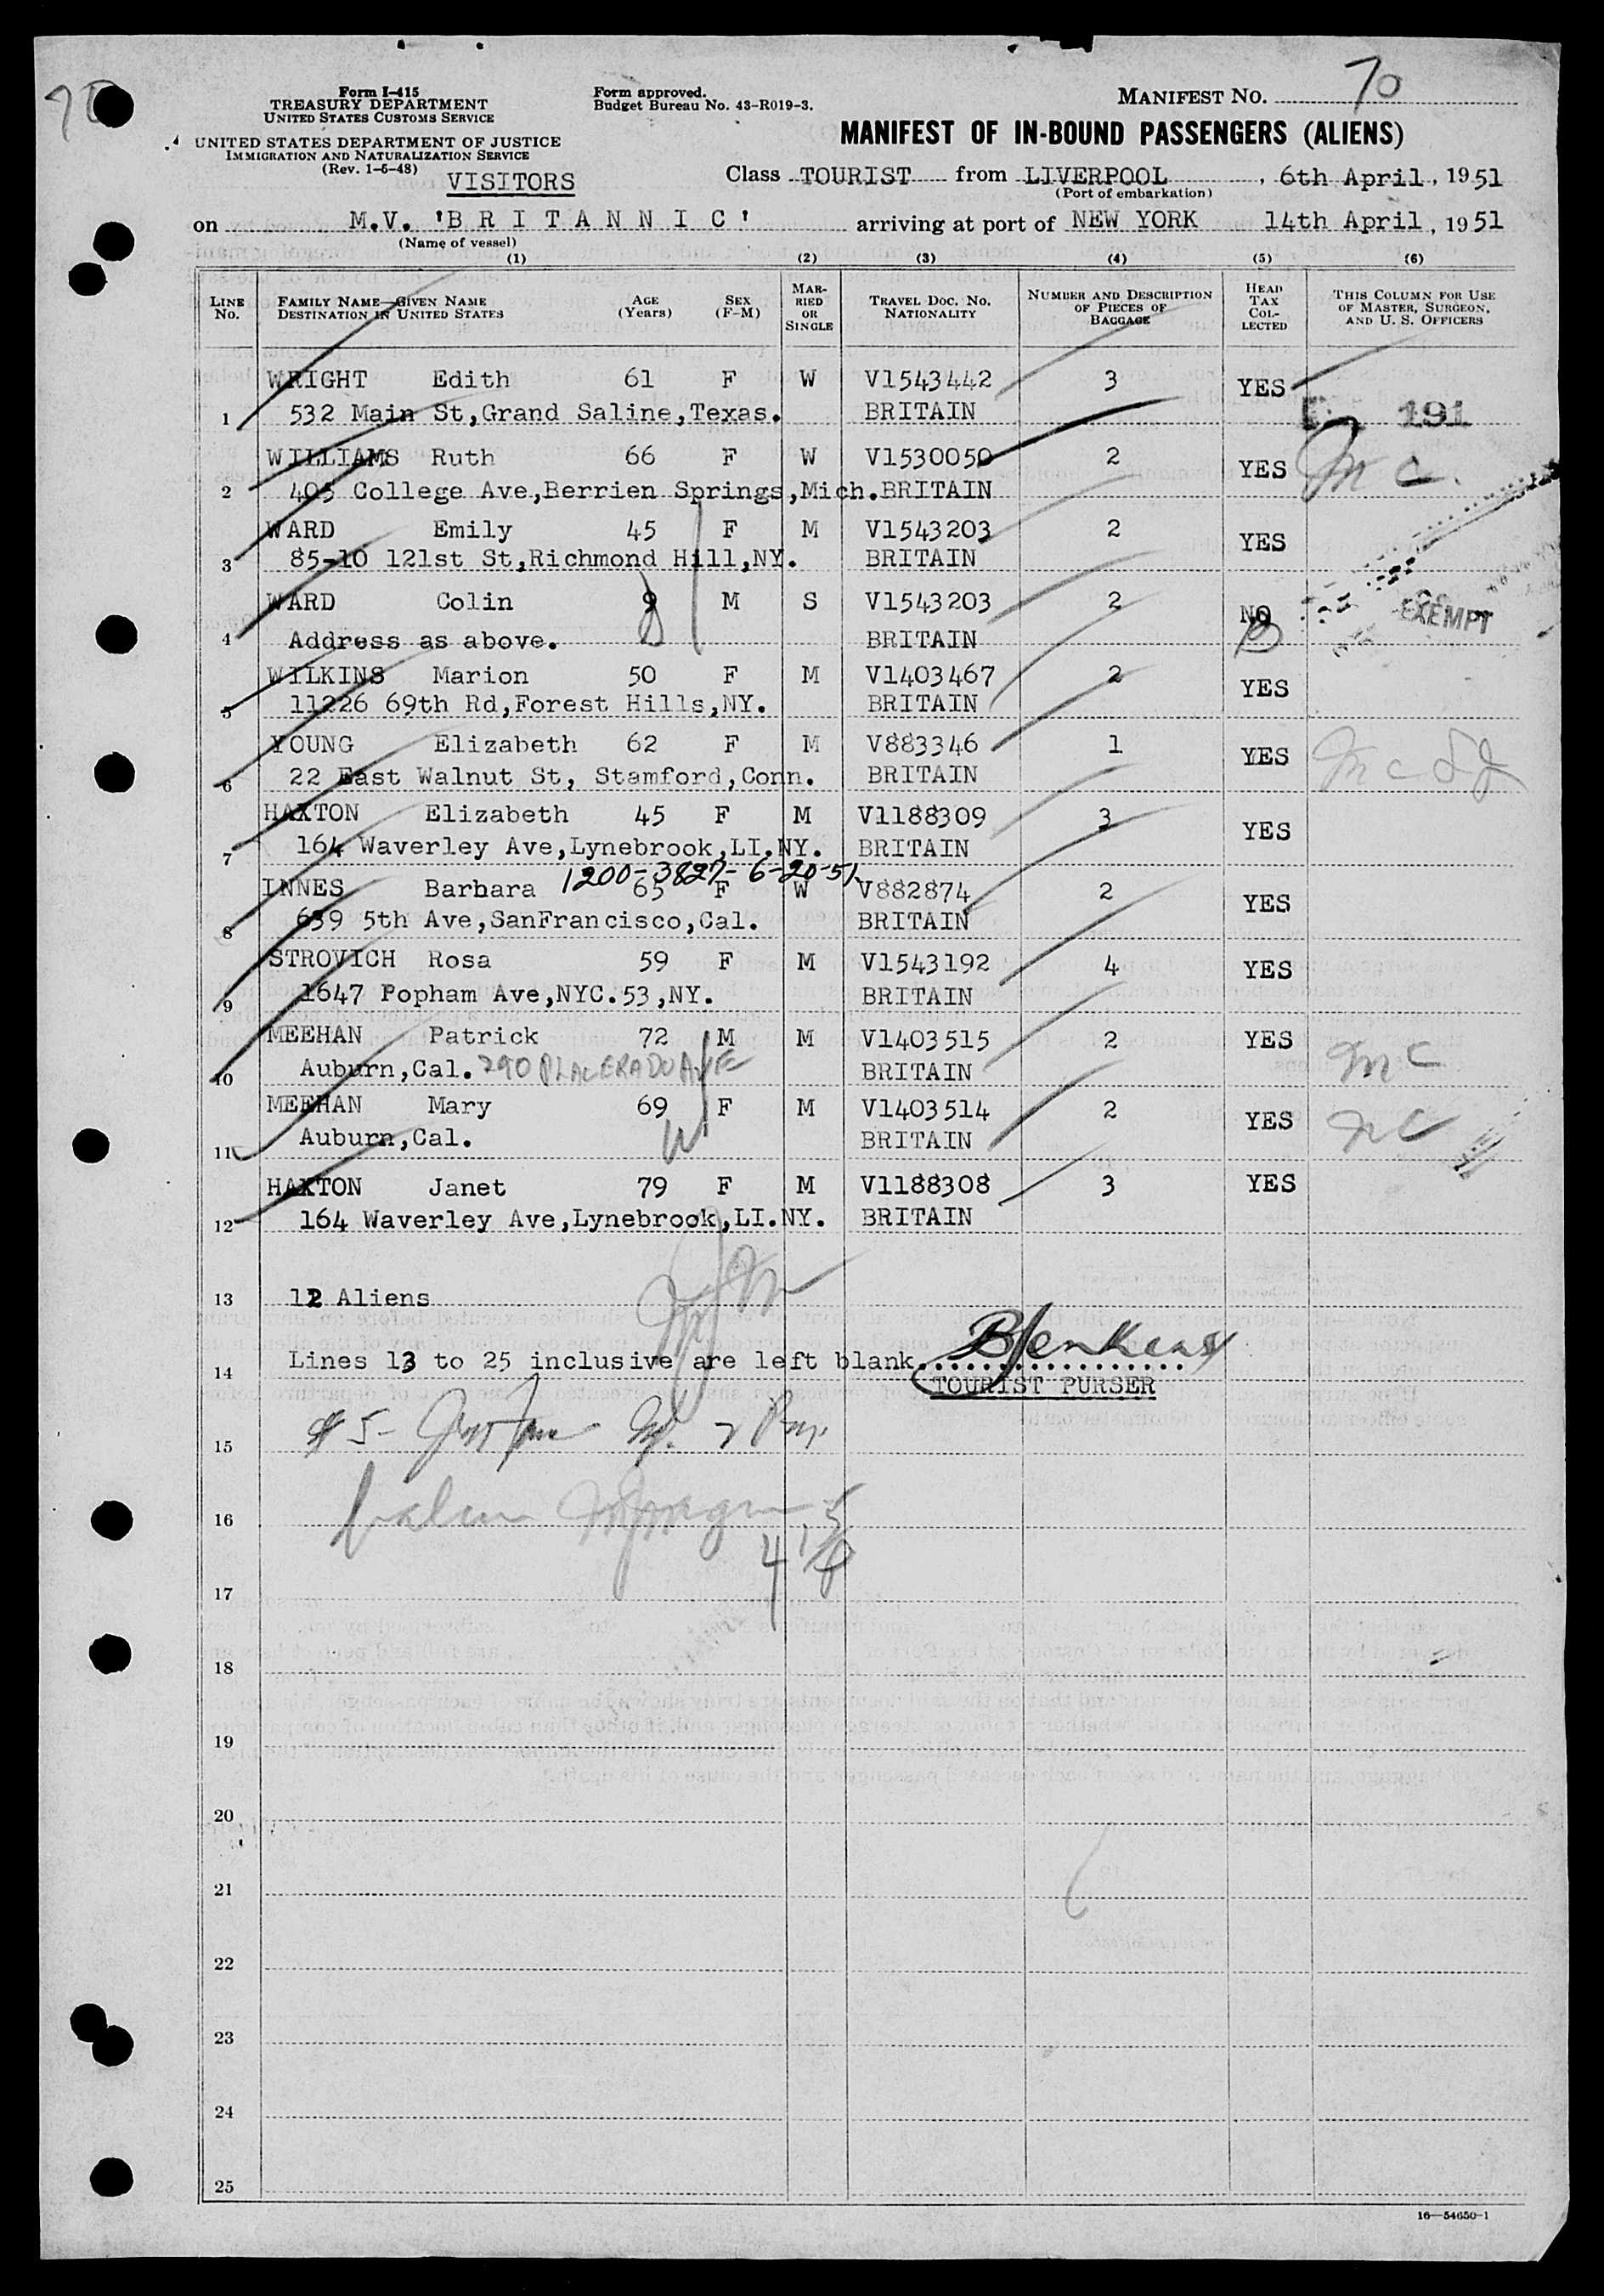 70
Form I-415
TREASURY DEPARTMENT
UNITED STATES CUSTOMS SERVICE
UNITED STATES DEPARTMENT OF JUSTICE
IMMIGRATION AND NATURALIZATION SERVICE
(Rev. 1-5-48)
VISITORS
Form approved.
Budget Bureau No. 43-R019-3.
MANIFEST NO. 70
MANIFEST OF IN-BOUND PASSENGERS (ALIENS)
Class TOURIST from LIVERPOOL, 6th April, 1951
(Port of embarkation)
on M.V. 'BRITANNIC' arriving at port of NEW YORK 14th April, 1951
(Name of vessel)
(1) (2) (3) (4) (5) (6)
LINE NO. FAMILY NAME—GIVEN NAME DESTINATION IN UNITED STATES AGE (YEARS) SEX (F-M) MARRIED OR SINGLE TRAVEL DOC. NO. NATIONALITY NUMBER AND DESCRIPTION OF PIECES OF BAGGAGE HEAD TAX COLLECTED THIS COLUMN FOR USE OF MASTER, SURGEON, AND U. S. OFFICERS
WRIGHT Edith 61 F W V1543442 3 YES
1 532 Main St,Grand Saline,Texas. BRITAIN 191
WILLIAMS Ruth 66 F W V1530050 2 YES mc.
2 405 College Ave,Berrien Springs,Mich. BRITAIN
WARD Emily 45 F M V1543203 2 YES
3 85-10 121st St,Richmond Hill,NY. BRITAIN
WARD Colin 9 M S V1543203 2 NO EXEMPT
4 Address as above. BRITAIN
WILKINS Marion 50 F M V1403467 2 YES
5 11226 69th Rd,Forest Hills,NY. BRITAIN
YOUNG Elizabeth 62 F M V883346 1 YES
6 22 East Walnut St, Stamford,Conn. BRITAIN
HAXTON Elizabeth 45 F M V1188309 3 YES
7 164 Waverley Ave,Lynebrook,LI.NY. BRITAIN
1200-3827-6-20-51
INNES Barbara 65 F W V882874 2 YES
8 639 5th Ave,SanFrancisco,Cal. BRITAIN
STROVICH Rosa 59 F M V1543192 4 YES
9 1647 Popham Ave,NYC.53,NY. BRITAIN
MEEHAN Patrick 72 M M V1403515 2 YES mc
10 Auburn,Cal. 290 PLACERADO AVE BRITAIN
MEEHAN Mary 69 F M V1403514 2 YES mc
11 Auburn,Cal. BRITAIN
HAXTON Janet 79 F M V1188308 3 YES
12 164 Waverley Ave,Lynebrook,LI.NY. BRITAIN
13 12 Aliens
14 Lines 13 to 25 inclusive are left blank. BJenkins
TOURIST PURSER
15
16
17
18
19
20
21
22
23
24
25
16—54650-1